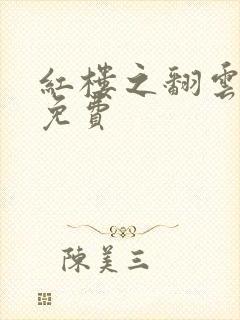 紅樓之翻雲
免費
陳美三